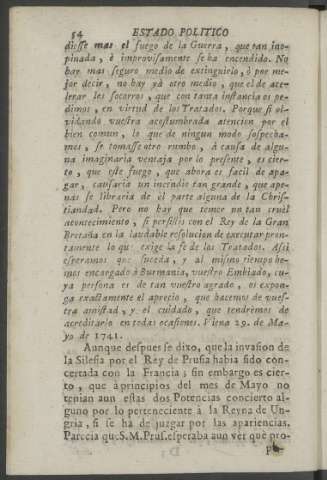 54 ESTADO POLITICO
diesse mas el fuego de la Guerra, que tan ino-
pinada, è improvisamente se ha encendido. No
hay mas seguro medio de extinguirlo, ò por me-
jor decir, no hay yà otro medio, que el de ace-
lerar los socorros, que con tanta instancia os pe-
dimos, en virtud de los Tratados. Porque si ol-
vidando vuestra acostumbrada atencion por el
bien comun, lo que de ningun modo sospecha-
mos, se tomasse otro rumbo, à causa de algu-
na imaginaria ventaja por lo presente, es cier-
to, que este fuego, que ahora es facil de apa-
gar, causaria un incendio tan grande, que ape-
nas se libraria de el parte alguna de la Chris-
tiandad. Pero no hay que temer un tan cruèl
acontecimiento, si persistis con el Rey de la Gran
Bretaña en la laudable resolucion de executar pron-
tamente lo que exige la fe de los Tratados. Assi
esperamos que suceda, y al mismo tiempo he-
mos encargado à Burmania, vuestro Embiado, cu-
ya persona es de tan vuestro agrado, os expon-
ga exactamente el aprecio, que hacemos de vues-
tra amistad, y el cuidado, que tendrèmos de
acreditarlo en todas ocasiones. Viena 29. de Ma-
yo de 1741.
Aunque despues se dixo, que la invasion de
la Silesia por el Rey de Prusia habia sido con-
certada con la Francia; sin embargo es cier-
to, que à principios del mes de Mayo no
tenian aun estas dos Potencias concierto al-
guno por lo perteneciente à la Reyna de Un-
gria, si se ha de juzgar por las apariencias.
Parecia que S.M.Prus.esperaba aun vèr què pro-